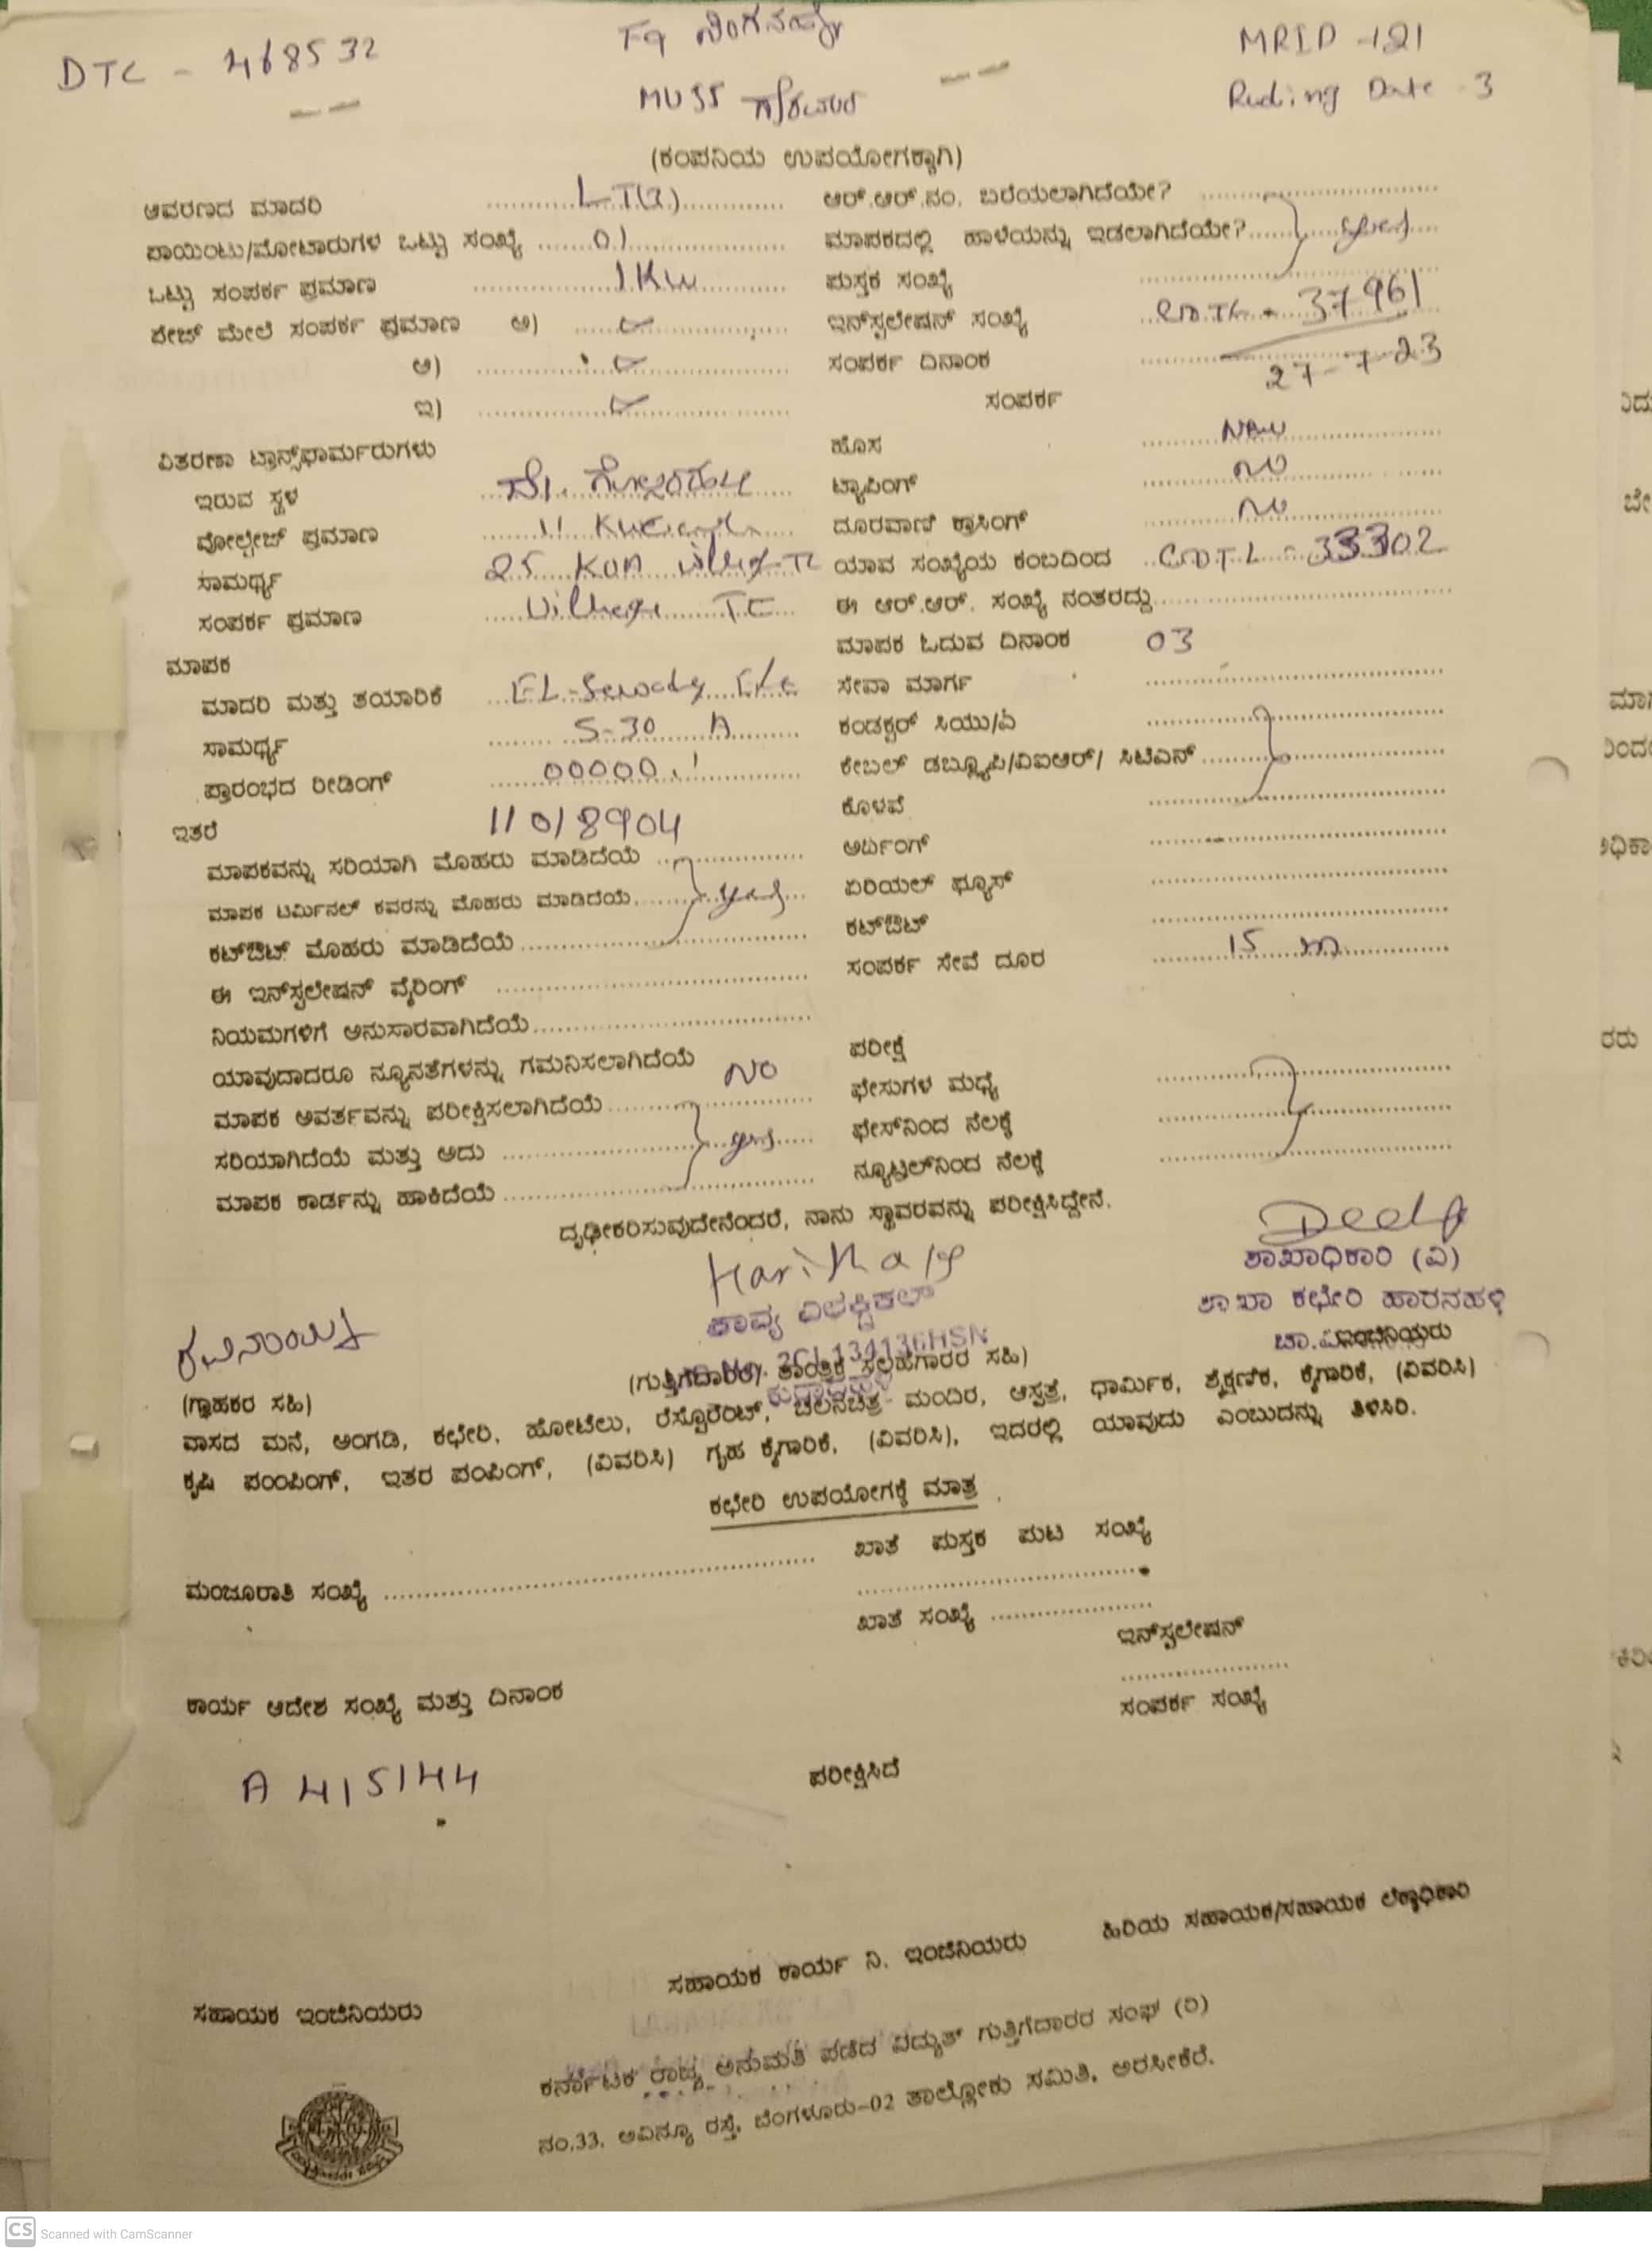 DTC - 468532
MRID - 121
MUSS
Reding Date 3
(ಕಂಪನಿಯ ಉಪಯೋಗಕ್ಕಾಗಿ)
ಆವರಣದ ಮಾದರಿ LT(3)
ಆರ್.ಆರ್.ನಂ. ಬರೆಯಲಾಗಿದೆಯೇ?
ಪಾಯಿಂಟು/ಮೋಟಾರುಗಳ ಒಟ್ಟು ಸಂಖ್ಯೆ 01
ಮಾಪಕದಲ್ಲಿ ಹಾಳೆಯನ್ನು ಇಡಲಾಗಿದೆಯೇ? yes
ಒಟ್ಟು ಸಂಪರ್ಕ ಪ್ರಮಾಣ 1 KW
ಪುಸ್ತಕ ಸಂಖ್ಯೆ
ಪೇಜ್ ಮೇಲೆ ಸಂಪರ್ಕ ಪ್ರಮಾಣ ಅ)
ಇನ್‌ಸ್ಟಲೇಷನ್ ಸಂಖ್ಯೆ 37961
ಆ)
ಸಂಪರ್ಕ ದಿನಾಂಕ 27-7-23
ಇ)
ಸಂಪರ್ಕ
ವಿತರಣಾ ಟ್ರಾನ್ಸ್‌ಫಾರ್ಮರುಗಳು
ಹೊಸ New
ಇರುವ ಸ್ಥಳ
ಟ್ಯಾಪಿಂಗ್ NO
ವೋಲ್ಟೇಜ್ ಪ್ರಮಾಣ 11
ದೂರವಾಣಿ ಕ್ರಾಸಿಂಗ್ NO
ಸಾಮರ್ಥ್ಯ 25 KVA
ಯಾವ ಸಂಖ್ಯೆಯ ಕಂಬದಿಂದ 33302
ಸಂಪರ್ಕ ಪ್ರಮಾಣ Village TC
ಈ ಆರ್.ಆರ್. ಸಂಖ್ಯೆ ನಂತರದ್ದು
ಮಾಪಕ
ಮಾಪಕ ಓದುವ ದಿನಾಂಕ 03
ಮಾದರಿ ಮತ್ತು ತಯಾರಿಕೆ
ಸೇವಾ ಮಾರ್ಗ
ಸಾಮರ್ಥ್ಯ 5-30 A
ಕಂಡಕ್ಟರ್ ಸಿಯು/ಎ
ಪ್ರಾರಂಭದ ರೀಡಿಂಗ್ 00000.1
ಕೇಬಲ್ ಡಬ್ಲ್ಯೂಪಿ/ವಿಐಆರ್/ ಸಿಟಿಎಸ್
ಇತರೆ 11018904
ಕೊಳವೆ
ಮಾಪಕವನ್ನು ಸರಿಯಾಗಿ ಮೊಹರು ಮಾಡಿದೆಯೆ
ಅರ್ಥಿಂಗ್
ಮಾಪಕ ಟರ್ಮಿನಲ್ ಕವರನ್ನು ಮೊಹರು ಮಾಡಿದೆಯೆ yes
ಏರಿಯಲ್ ಫ್ಯೂಸ್
ಕಟ್‌ಔಟ್ ಮೊಹರು ಮಾಡಿದೆಯೆ
ಕಟ್‌ಔಟ್
ಈ ಇನ್‌ಸ್ಟಲೇಷನ್ ವೈರಿಂಗ್
ಸಂಪರ್ಕ ಸೇವೆ ದೂರ 15 m
ನಿಯಮಗಳಿಗೆ ಅನುಸಾರವಾಗಿದೆಯೆ
ಯಾವುದಾದರೂ ನ್ಯೂನತೆಗಳನ್ನು ಗಮನಿಸಲಾಗಿದೆಯೆ NO
ಪರೀಕ್ಷೆ
ಮಾಪಕ ಅವರ್ತವನ್ನು ಪರೀಕ್ಷಿಸಲಾಗಿದೆಯೆ
ಫೇಸುಗಳ ಮಧ್ಯೆ
ಸರಿಯಾಗಿದೆಯೆ ಮತ್ತು ಅದು yes
ಫೇಸ್‌ನಿಂದ ನೆಲಕ್ಕೆ
ಮಾಪಕ ಕಾರ್ಡನ್ನು ಹಾಕಿದೆಯೆ
ನ್ಯೂಟ್ರಲ್‌ನಿಂದ ನೆಲಕ್ಕೆ
ದೃಢೀಕರಿಸುವುದೇನೆಂದರೆ, ನಾನು ಸ್ಥಾವರವನ್ನು ಪರೀಕ್ಷಿಸಿದ್ದೇನೆ.
ಶಾಖಾಧಿಕಾರಿ (ವಿ)
ಶಾಖಾ ಕಛೇರಿ ಹಾರನಹಳ್ಳಿ
(ಗುತ್ತಿಗೆದಾರರ/ ತಾಂತ್ರಿಕ ಸಲಹೆಗಾರರ ಸಹಿ)
(ಗ್ರಾಹಕರ ಸಹಿ)
ವಾಸದ ಮನೆ, ಅಂಗಡಿ, ಕಛೇರಿ, ಹೋಟೆಲು, ರೆಸ್ಟೊರೆಂಟ್, ಚಲನಚಿತ್ರ ಮಂದಿರ, ಆಸ್ಪತ್ರೆ, ಧಾರ್ಮಿಕ, ಶೈಕ್ಷಣಿಕ, ಕೈಗಾರಿಕೆ, (ವಿವರಿಸಿ)
ಕೃಷಿ ಪಂಪಿಂಗ್, ಇತರ ಪಂಪಿಂಗ್, (ವಿವರಿಸಿ) ಗೃಹ ಕೈಗಾರಿಕೆ, (ವಿವರಿಸಿ), ಇದರಲ್ಲಿ ಯಾವುದು ಎಂಬುದನ್ನು ತಿಳಿಸಿರಿ.
ಕಛೇರಿ ಉಪಯೋಗಕ್ಕೆ ಮಾತ್ರ
ಖಾತೆ ಪುಸ್ತಕ ಪುಟ ಸಂಖ್ಯೆ
ಮಂಜೂರಾತಿ ಸಂಖ್ಯೆ
ಖಾತೆ ಸಂಖ್ಯೆ
ಇನ್‌ಸ್ಟಲೇಷನ್
ಕಾರ್ಯ ಆದೇಶ ಸಂಖ್ಯೆ ಮತ್ತು ದಿನಾಂಕ
ಸಂಪರ್ಕ ಸಂಖ್ಯೆ
A 415144
ಪರೀಕ್ಷಿಸಿದೆ
ಹಿರಿಯ ಸಹಾಯಕ/ಸಹಾಯಕ ಲೆಕ್ಕಾಧಿಕಾರಿ
ಸಹಾಯಕ ಕಾರ್ಯ ನಿ. ಇಂಜಿನಿಯರು
ಸಹಾಯಕ ಇಂಜಿನಿಯರು
ಕರ್ನಾಟಕ ರಾಜ್ಯ ಅನುಮತಿ ಪಡೆದ ವಿದ್ಯುತ್ ಗುತ್ತಿಗೆದಾರರ ಸಂಘ (ರಿ)
ನಂ.33, ಅವಿನ್ಯೂ ರಸ್ತೆ, ಬೆಂಗಳೂರು-02 ತಾಲ್ಲೋಕು ಸಮಿತಿ, ಅರಸೀಕೆರೆ.
CS Scanned with CamScanner